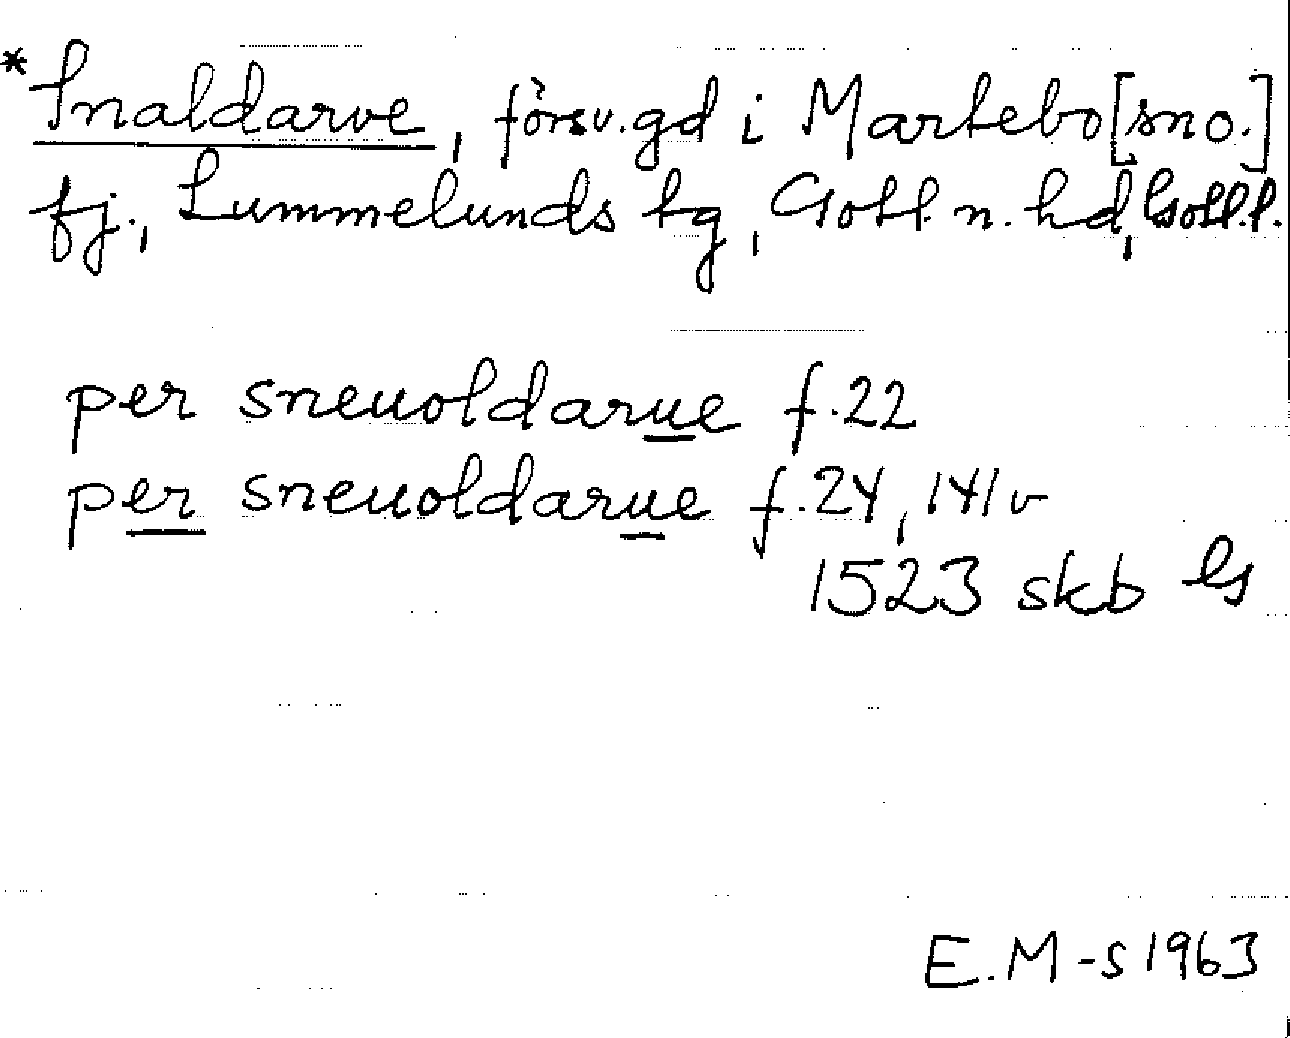 *Snaldarve, försv. gd i Martebo [sno.]
tj., Lummelunds tg, Gotl. n. hd, Gotl. l.
per sneuoldarue f. 22
per sneuoldarue f. 24, 141v
1523 skb
E. M-s 1963